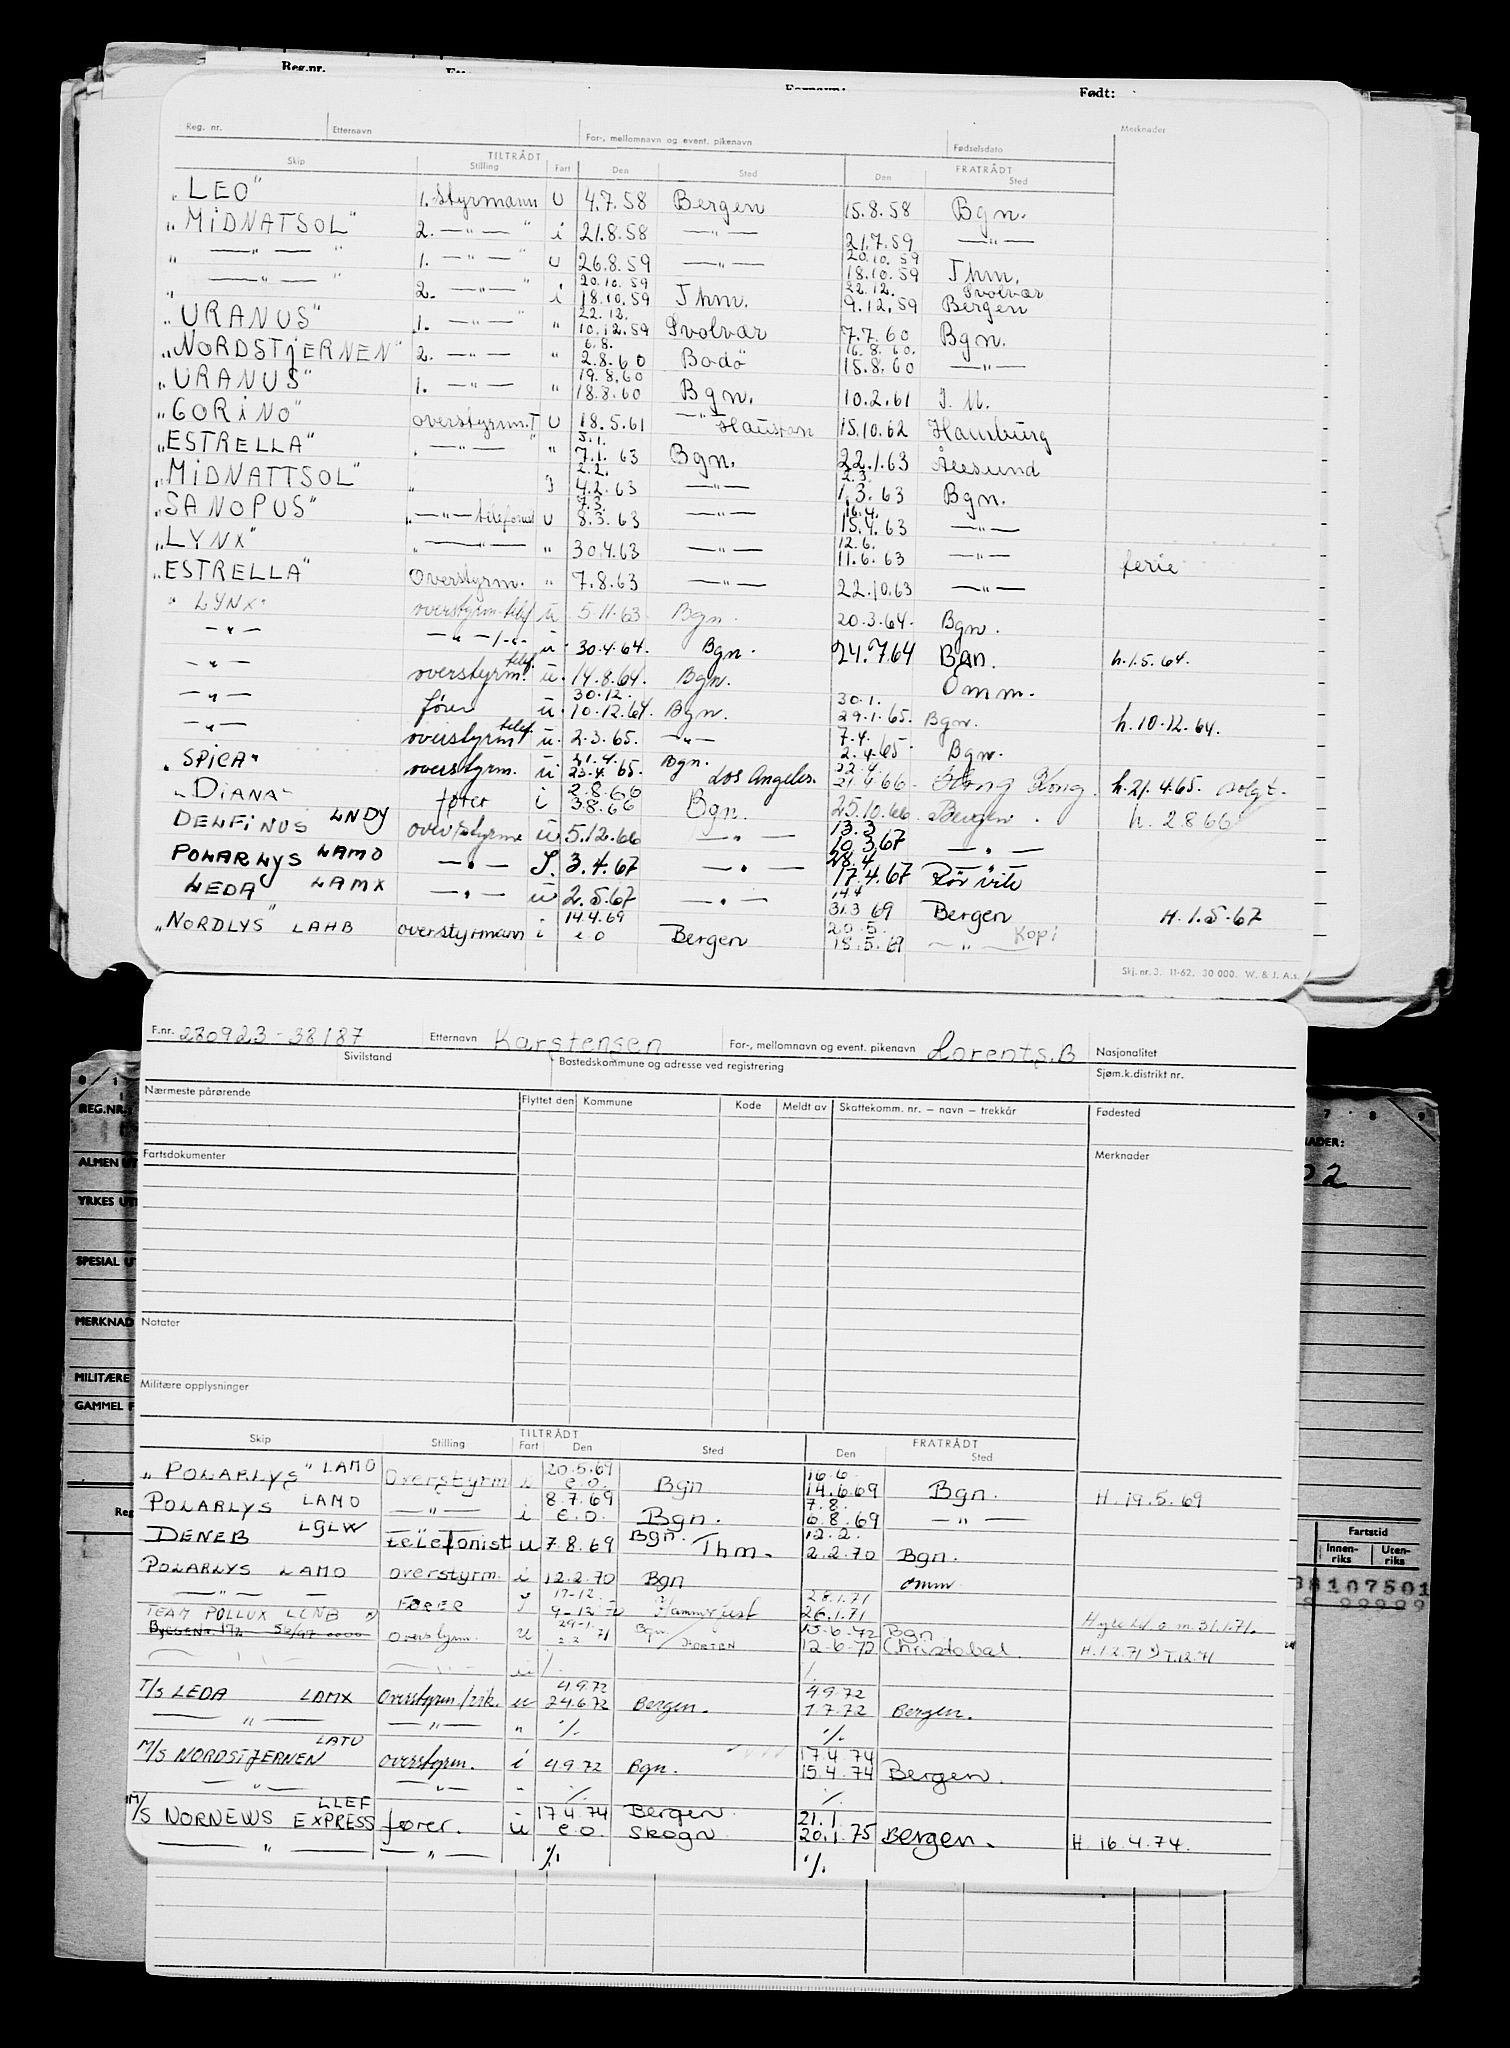 Reg.nr.
Fornavn:
Født:
Reg. nr. Etternavn For-, mellomnavn og event. pikenavn Fødselsdato Merknader
TILTRÅDT FRATRÅDT
Skip Stilling Fart Den Sted Den Sted
„LEO" 1. Styrmann U 4.7.58 Bergen 15.8.58 Bgn.
„MIDNATSOL" 2. —"— i 21.8.58 —"— 21.7.59 —"—
„ —"— " 1. —"— U 26.8.59 —"— 20.10.59 18.10.59 Thm.
„ —"— " 2. —"— i 20.10.59 18.10.59 Thm. 22.12. 9.12.59 Svolvær Bergen
„URANUS" 1. —"— " 22.12. 10.12.59 Svolvær 7.7.60 Bgn.
„NORDSTJERNEN" 2. —"— " 6.8. 2.8.60 Bodö 16.8.60. 15.8.60 —"—
„URANUS" 1. —"— " 19.8.60 18.8.60 Bgn. 10.2.61
„GORINO" overstyrm. U 18.5.61 —"— 15.10.62 Hamburg
„ESTRELLA" —"— " 5.1. 7.1.63 Bgn. 22.1.63 Ålesund
„MIDNATTSOL" „ 2.2. 4.2.63 —"— 2.3. 1.3.63 Bgn.
„SANOPUS" „—"— telefonist U 7.3. 8.3.63 —"— 16.4. 15.4.63 —"—
„LYNX" „—"— " 30.4.63 —"— 12.6. 11.6.63 —"— ferie
„ESTRELLA" Overstyrm. " 7.8.63 —"— 22.10.63 —"—
" LYNX" overstyrm. telef u 5.11.63 Bgn. 20.3.64. Bgn.
—"— —"—/-"- u. 30.4.64. Bgn. 24.7.64 Bgn. h.1.5.64.
—"— overstyrm. telef. u. 14.8.64. Bgn. Omm.
—"— fører u. 30.12. 10.12.64. Bgn. 30.1. 29.1.65. Bgn. h.10.12.64.
—"— overstyrm telef. u. 2.3.65. —"— 7.4. 2.4.65 Bgn.
„SPICA" overstyrm. u 21.4. 23.4.65. Bgn. Los Angeles. 22.4 21.4.66 Hong Kong. h.21.4.65. solgt.
„DIANA" fører i 2.8.66 3.8.66 Bgn. 25.10.66 Bergen. h. 2.8.66
DELFINUS LNDY overstyrm u 5.12.66 —"— 13.3 10.3.67 —"—
POLARLYS LAMO —"— I. 3.4.67 —"— 28.4. 17.4.67 Rörvik
LEDA LAMX —"— u 2.5.67 —"— 14.4 31.3 69 Bergen H.1.5.67
„NORDLYS" LAHB overstyrmann i 14.4.69 e.o Bergen 20.5. 18.5.69 —"— Kopi
Skj. nr. 3. 11-62. 30 000. W. & J. A.s.
F.nr. 280923-38187 Etternavn Karstensen For-, mellomnavn og event. pikenavn Lorents. B Nasjonalitet
Sivilstand Bostedskommune og adresse ved registrering Sjøm.k.distrikt nr.
Nærmeste pårørende Flyttet den Kommune Kode Meldt av Skattekomm. nr. – navn – trekkår Fødested
Fartsdokumenter Merknader
Notater
Militære opplysninger
TILTRÅDT FRATRÅDT
Skip Stilling Fart Den Sted Den Sted
„POLARLYS" LAMO Overstyrm i 20.5.69 e.o. Bgn 16.6. 14.6.69 Bgn. H. 19.5.69
POLARLYS LAMO —"— i 8.7.69 e.o. Bgn. 7.8. 6.8.69 —"—
DENEB LGLW telefonist u 7.8.69 Bgn. Thm. 12.2. 2.2.70 Bgn.
POLARLYS LAMO overstyrm. i 12.2.70 Bgn omm
—"— — FØRER I 17-12. 9-12-70 Hammerfest 28.1.71 26.1.71
TEAM POLLUX LCNB overstyrm. u 29-1- 2.2.71 Bgn. / HORTEN 15.6.72 12-6-72 Bgn Christobal. H.1.2.71
u % %
T/S LEDA LAMX overstyrm/vik. u 4.9.72 24.6.72 Bergen. 4.9.72 1.7.72 Bergen.
—"— —"— " % %
M/S NORDSTJERNEN LATU overstyrm. i 4.9.72 Bgn. 17.4.74 15.4.74 Bergen.
—"— —"— " % %
M/S NORNEWS EXPRESS LLEF fører. u 17.4.74 e.o. Bergen Skogn 21.1. 20.1.75 Bergen. H. 16.4.74.
—"— —"— % %
REG.NR.
ALMEN UT
YRKES UT
SPESIAL UT
MERKNAD
MILITÆRE
GAMMEL F
Reg
7 8 9
NADER:
02
Fartstid
Innenriks Utenriks